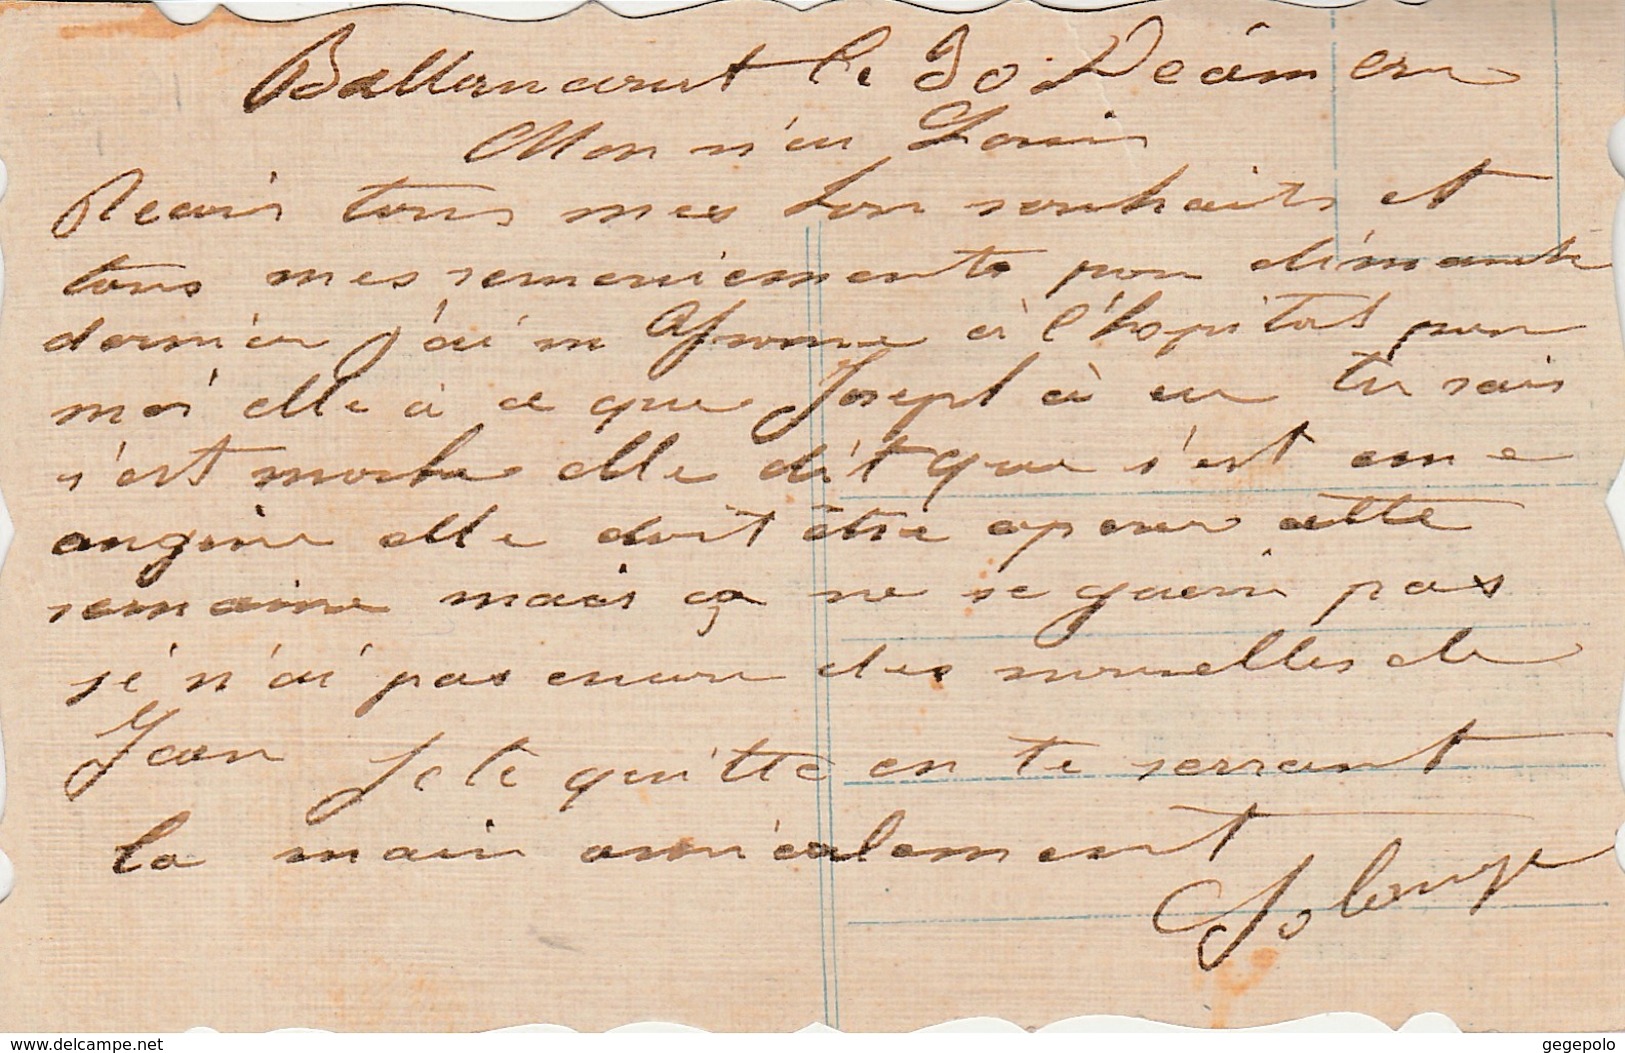 Ballancourt le 30 Décembre
Mon Louis
Recois tous mes bon souhaits et
tous mes remerciements pour dimanche
dernier j'ai à l'hopital pour
moi elle à ce que Joseph à eu tu sais
s'est elle dit que s'est une
angine elle doit être operer cette
semaine mais ça ne se guerri pas
je n'ai pas encore des nouvelles de
Jean Je te quitte en te serrant
la main amicalement
Solange
www.delcampe.net
gegepolo